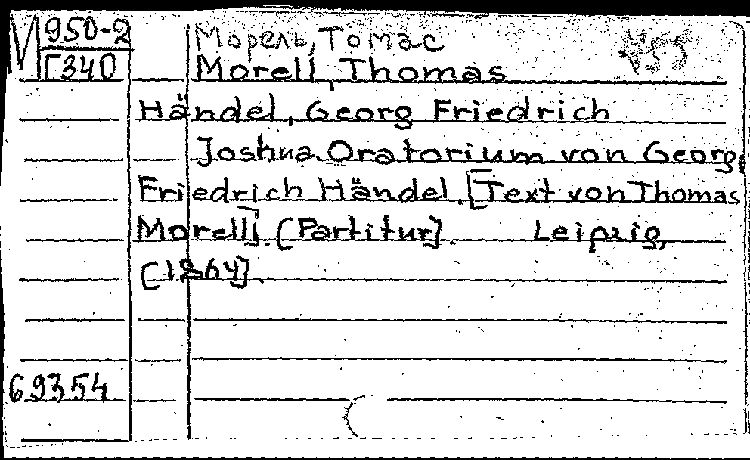 950-2
Г340
Морель, Томас
Morell, Thomas
Händel, Georg Friedrich
Joshua. Oratorium von Georg
Friedrich Händel. [Text von Thomas
Morell]. [Partitur]. Leipzig,
[1864].
69354